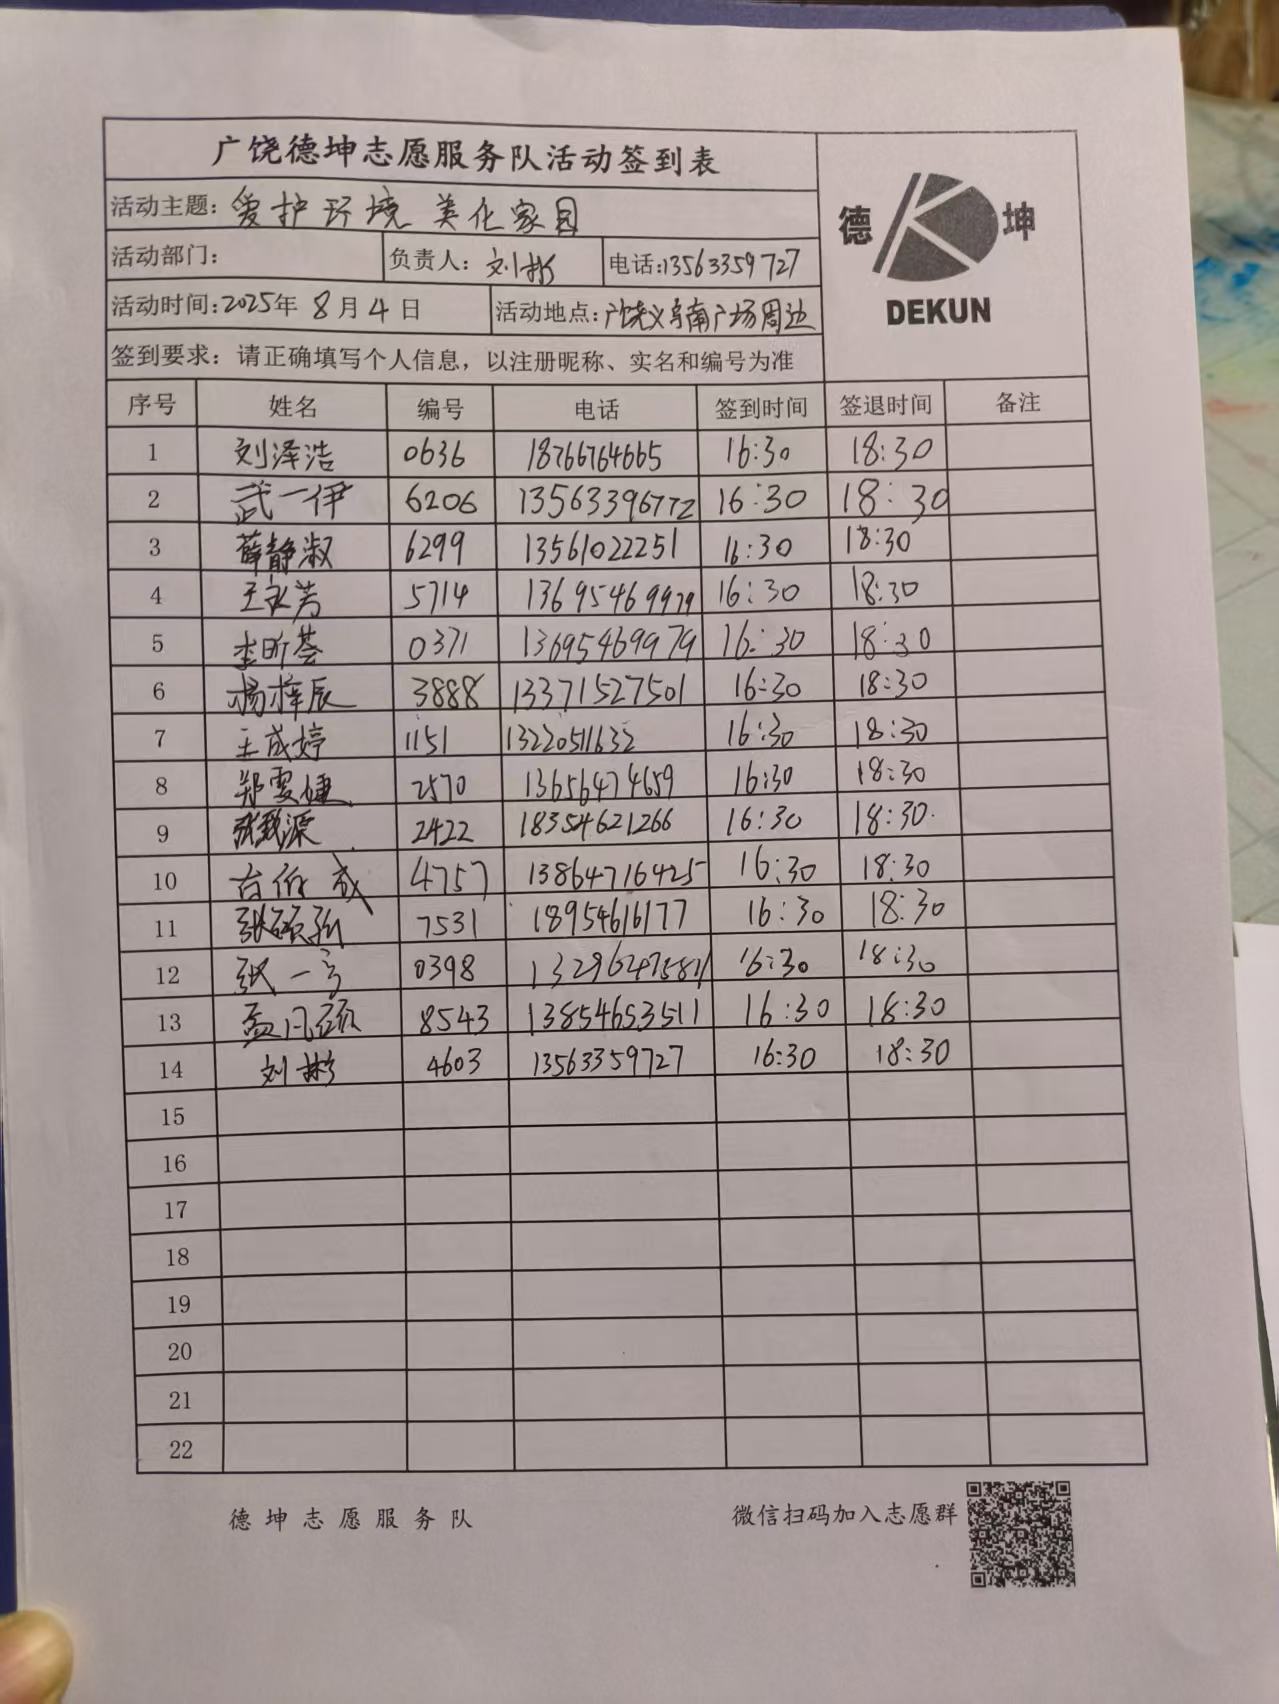 广饶德坤志愿服务队活动签到表
活动主题: 爱护环境 美化家园
德 坤
DEKUN
活动部门: 负责人: 刘彬 电话:13563359727
活动时间:2025年 8月4日 活动地点:广饶义亭南广场周边
签到要求: 请正确填写个人信息, 以注册昵称、实名和编号为准
序号 姓名 编号 电话 签到时间 签退时间 备注
1 刘泽浩 0636 18766764665 16:30 18:30
2 武一伊 6206 13563396772 16:30 18:30
3 薛静淑 6299 13561022251 16:30 18:30
4 王永芳 5714 13695469979 16:30 18:30
5 李昕荟 0371 13695469979 16:30 18:30
6 杨梓辰 3888 13371527501 16:30 18:30
7 王成婷 1151 13220511632 16:30 18:30
8 郑雯婕 2570 13656474659 16:30 18:30
9 2422 18354621266 16:30 18:30
10 4757 13864716425 16:30 18:30
11 7531 18954616177 16:30 18:30
12 0398 16:30 18:30
13 8543 13854653511 16:30 18:30
14 刘彬 4603 13563359727 16:30 18:30
15
16
17
18
19
20
21
22
德坤志愿服务队 微信扫码加入志愿群